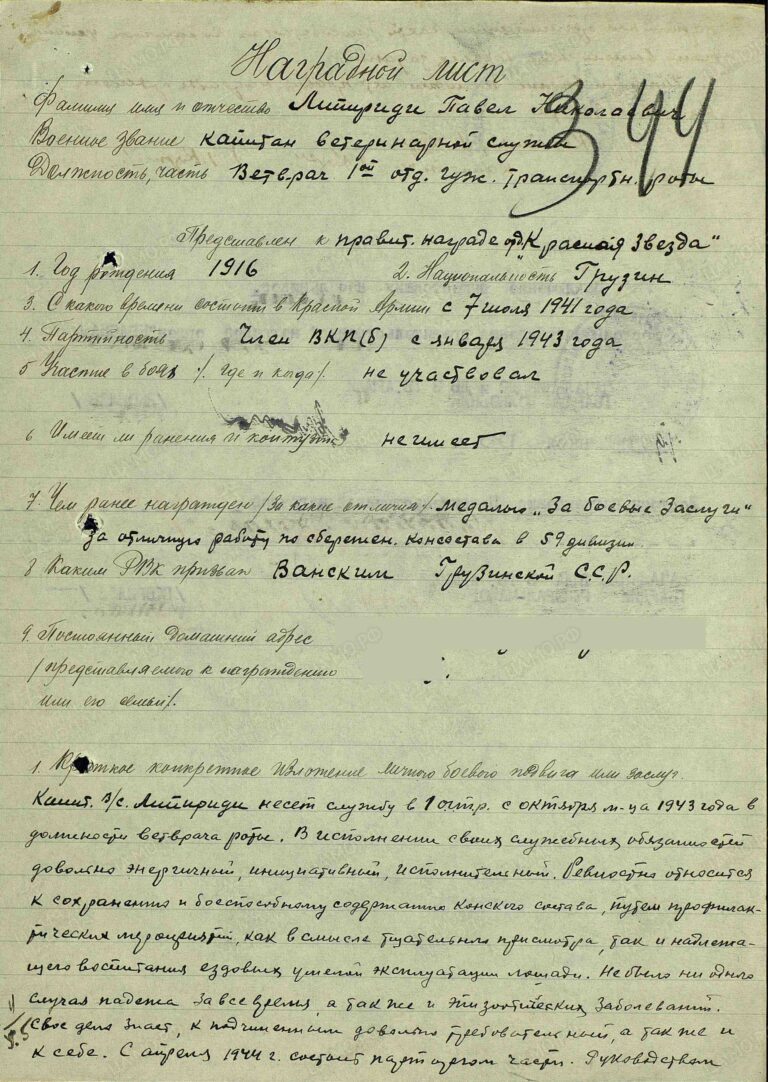 Наградной лист
344
Фамилия имя и отчество Литириди Павел Николаевич
Военное звание капитан ветеринарной службы
Должность, часть Ветврач 1ой отд. гуж. транспортн. роты
Представлен к правит. награде орд. "Красная Звезда"
1. Год рождения 1916 2. Национальность Грузин
3. С какого времени состоит в Красной Армии с 7 июля 1941 года
4. Партийность Член ВКП(б) с января 1943 года
5 Участие в боях /. где и когда/. не участвовал
6 Имеет ли ранения и контузии не имеет
7. Чем ранее награжден /за какие отличия/. медалью „За боевые Заслуги"
За отличную работу по сбережен. консостава в 59 дивизии.
8 Каким РВК призван Ванским Грузинской С.С.Р.
9. Постоянный домашний адрес
/представляемого к награждению
или его семьи/.
1. Краткое конкретное изложение личного боевого подвига или заслуг.
Капит. в/с. Литириди несет службу в 1 огтр. с октября м-ца 1943 года в
должности ветврача роты. В исполнении своих служебных обязанностей
довольно энергичный, инициативный, исполнительный. Ревностно относится
к сохранению и боеспособному содержанию конского состава, путем профилак-
тических мероприятий, как в смысле тщательного присмотра, так и надлежа-
щего воспитания ездовых умелой эксплуатации лошади. Не было ни одного
случая падежа за все время, а так же и эпизоотических заболеваний.
Свое дело знает, к подчиненным довольно требовательный, а так же и
к себе. С апреля 1944 г. состоит парторгом части. Руководством